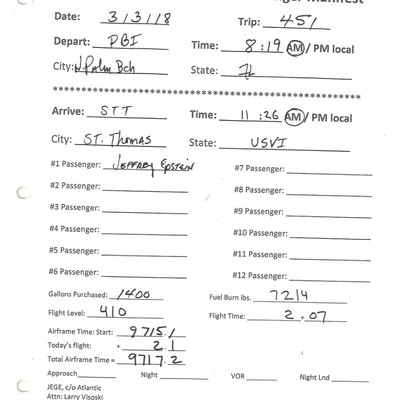 Manifest
Date: 3/3/18 Trip: 451
Depart: PBI Time: 8:19 AM / PM local
City: W Palm Bch State: Fl
********************************************
Arrive: STT Time: 11:26 AM / PM local
City: ST. Thomas State: USVI
#1 Passenger: Jeffrey Epstein #7 Passenger:
#2 Passenger: #8 Passenger:
#3 Passenger: #9 Passenger:
#4 Passenger: #10 Passenger:
#5 Passenger: #11 Passenger:
#6 Passenger: #12 Passenger:
Gallons Purchased: 1400 Fuel Burn lbs. 7214
Flight Level: 410 Flight Time: 2+07
Airframe Time: Start: 9715.1
Today's flight: + 2.1
Total Airframe Time = 9717.2
Approach Night VOR Night Lnd
JEGE, c/o Atlantic
Attn: Larry Visoski